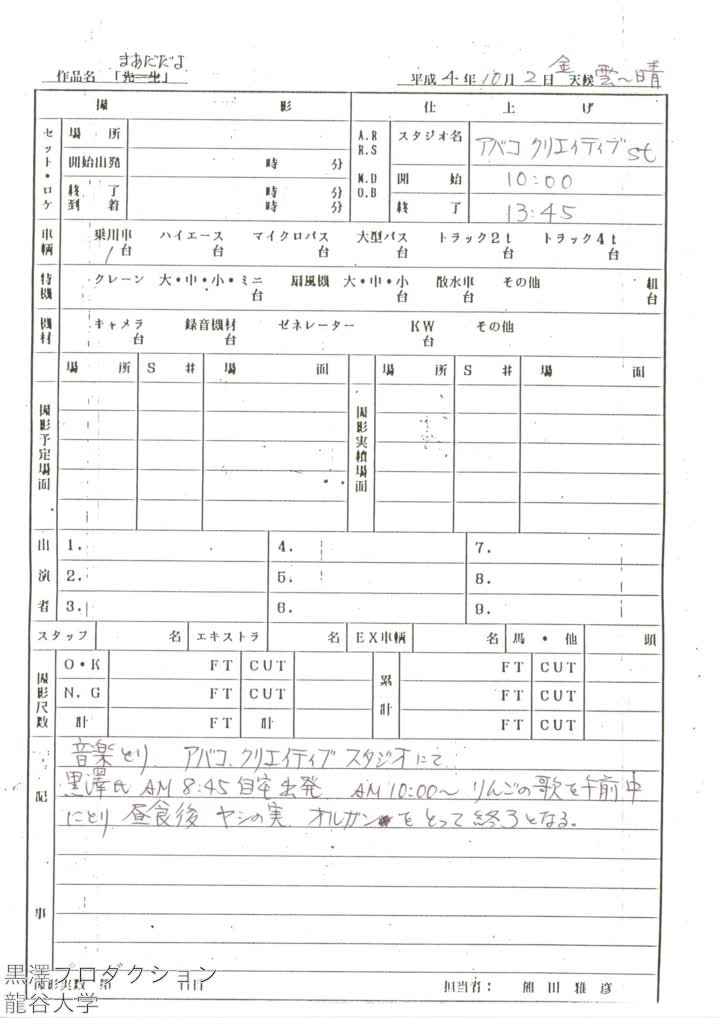 まあだだよ
作品名 「先生」 平成4年10月2日 金 天候 雲〜晴
撮 影 仕 上 げ
セット・ロケ 場 所 A.R R.S M.D O.B スタジオ名 アバコ クリエイティブ st
開始出発 時 分 開 始 10:00
終 了 時 分
到 着 時 分 終 了 13:45
車輌 乗用車 1台 ハイエース 台 マイクロバス 台 大型バス 台 トラック2t 台 トラック4t 台
特機 クレーン 大・中・小・ミニ 台 扇風機 大・中・小 台 散水車 台 その他 組 台
機材 キャメラ 台 録音機材 台 ゼネレーター KW 台 その他
撮影予定場面 場 所 S # 場 面 撮影実績場面 場 所 S # 場 面
出演者 1. 4. 7.
2. 5. 8.
3. 6. 9.
スタッフ 名 エキストラ 名 EX車輌 名 馬・他 頭
撮影尺数 O・K FT CUT 累計 FT CUT
N.G FT CUT FT CUT
計 FT 計 FT CUT
記事
音楽とり アバコ クリエイティブ スタジオにて
黒澤氏 AM 8:45 自宅出発 AM 10:00〜 りんごの歌を午前中
にとり 昼食後 ヤシの実 オルガン をとって終了となる。
撮影実数 第 日 担当者: 熊田雅彦
黒澤プロダクション
龍谷大学